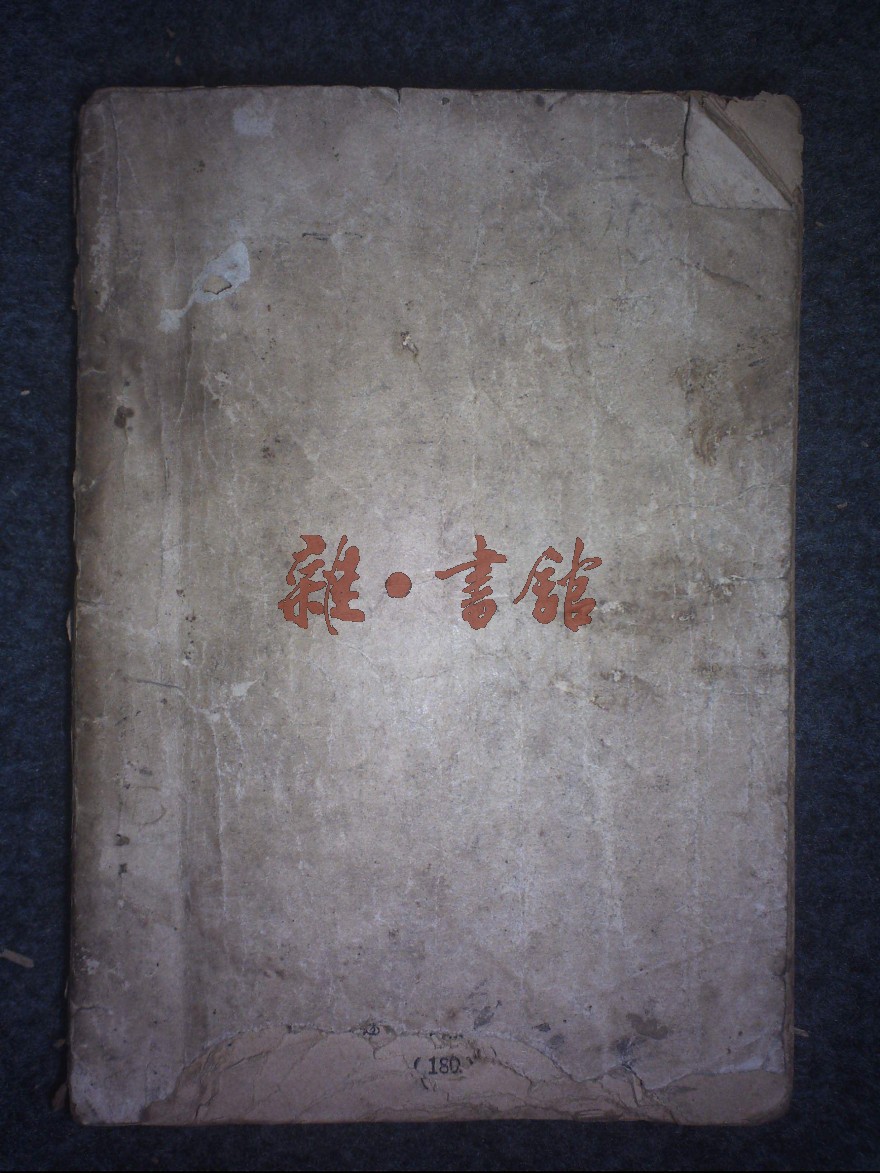 雜·書館
(180